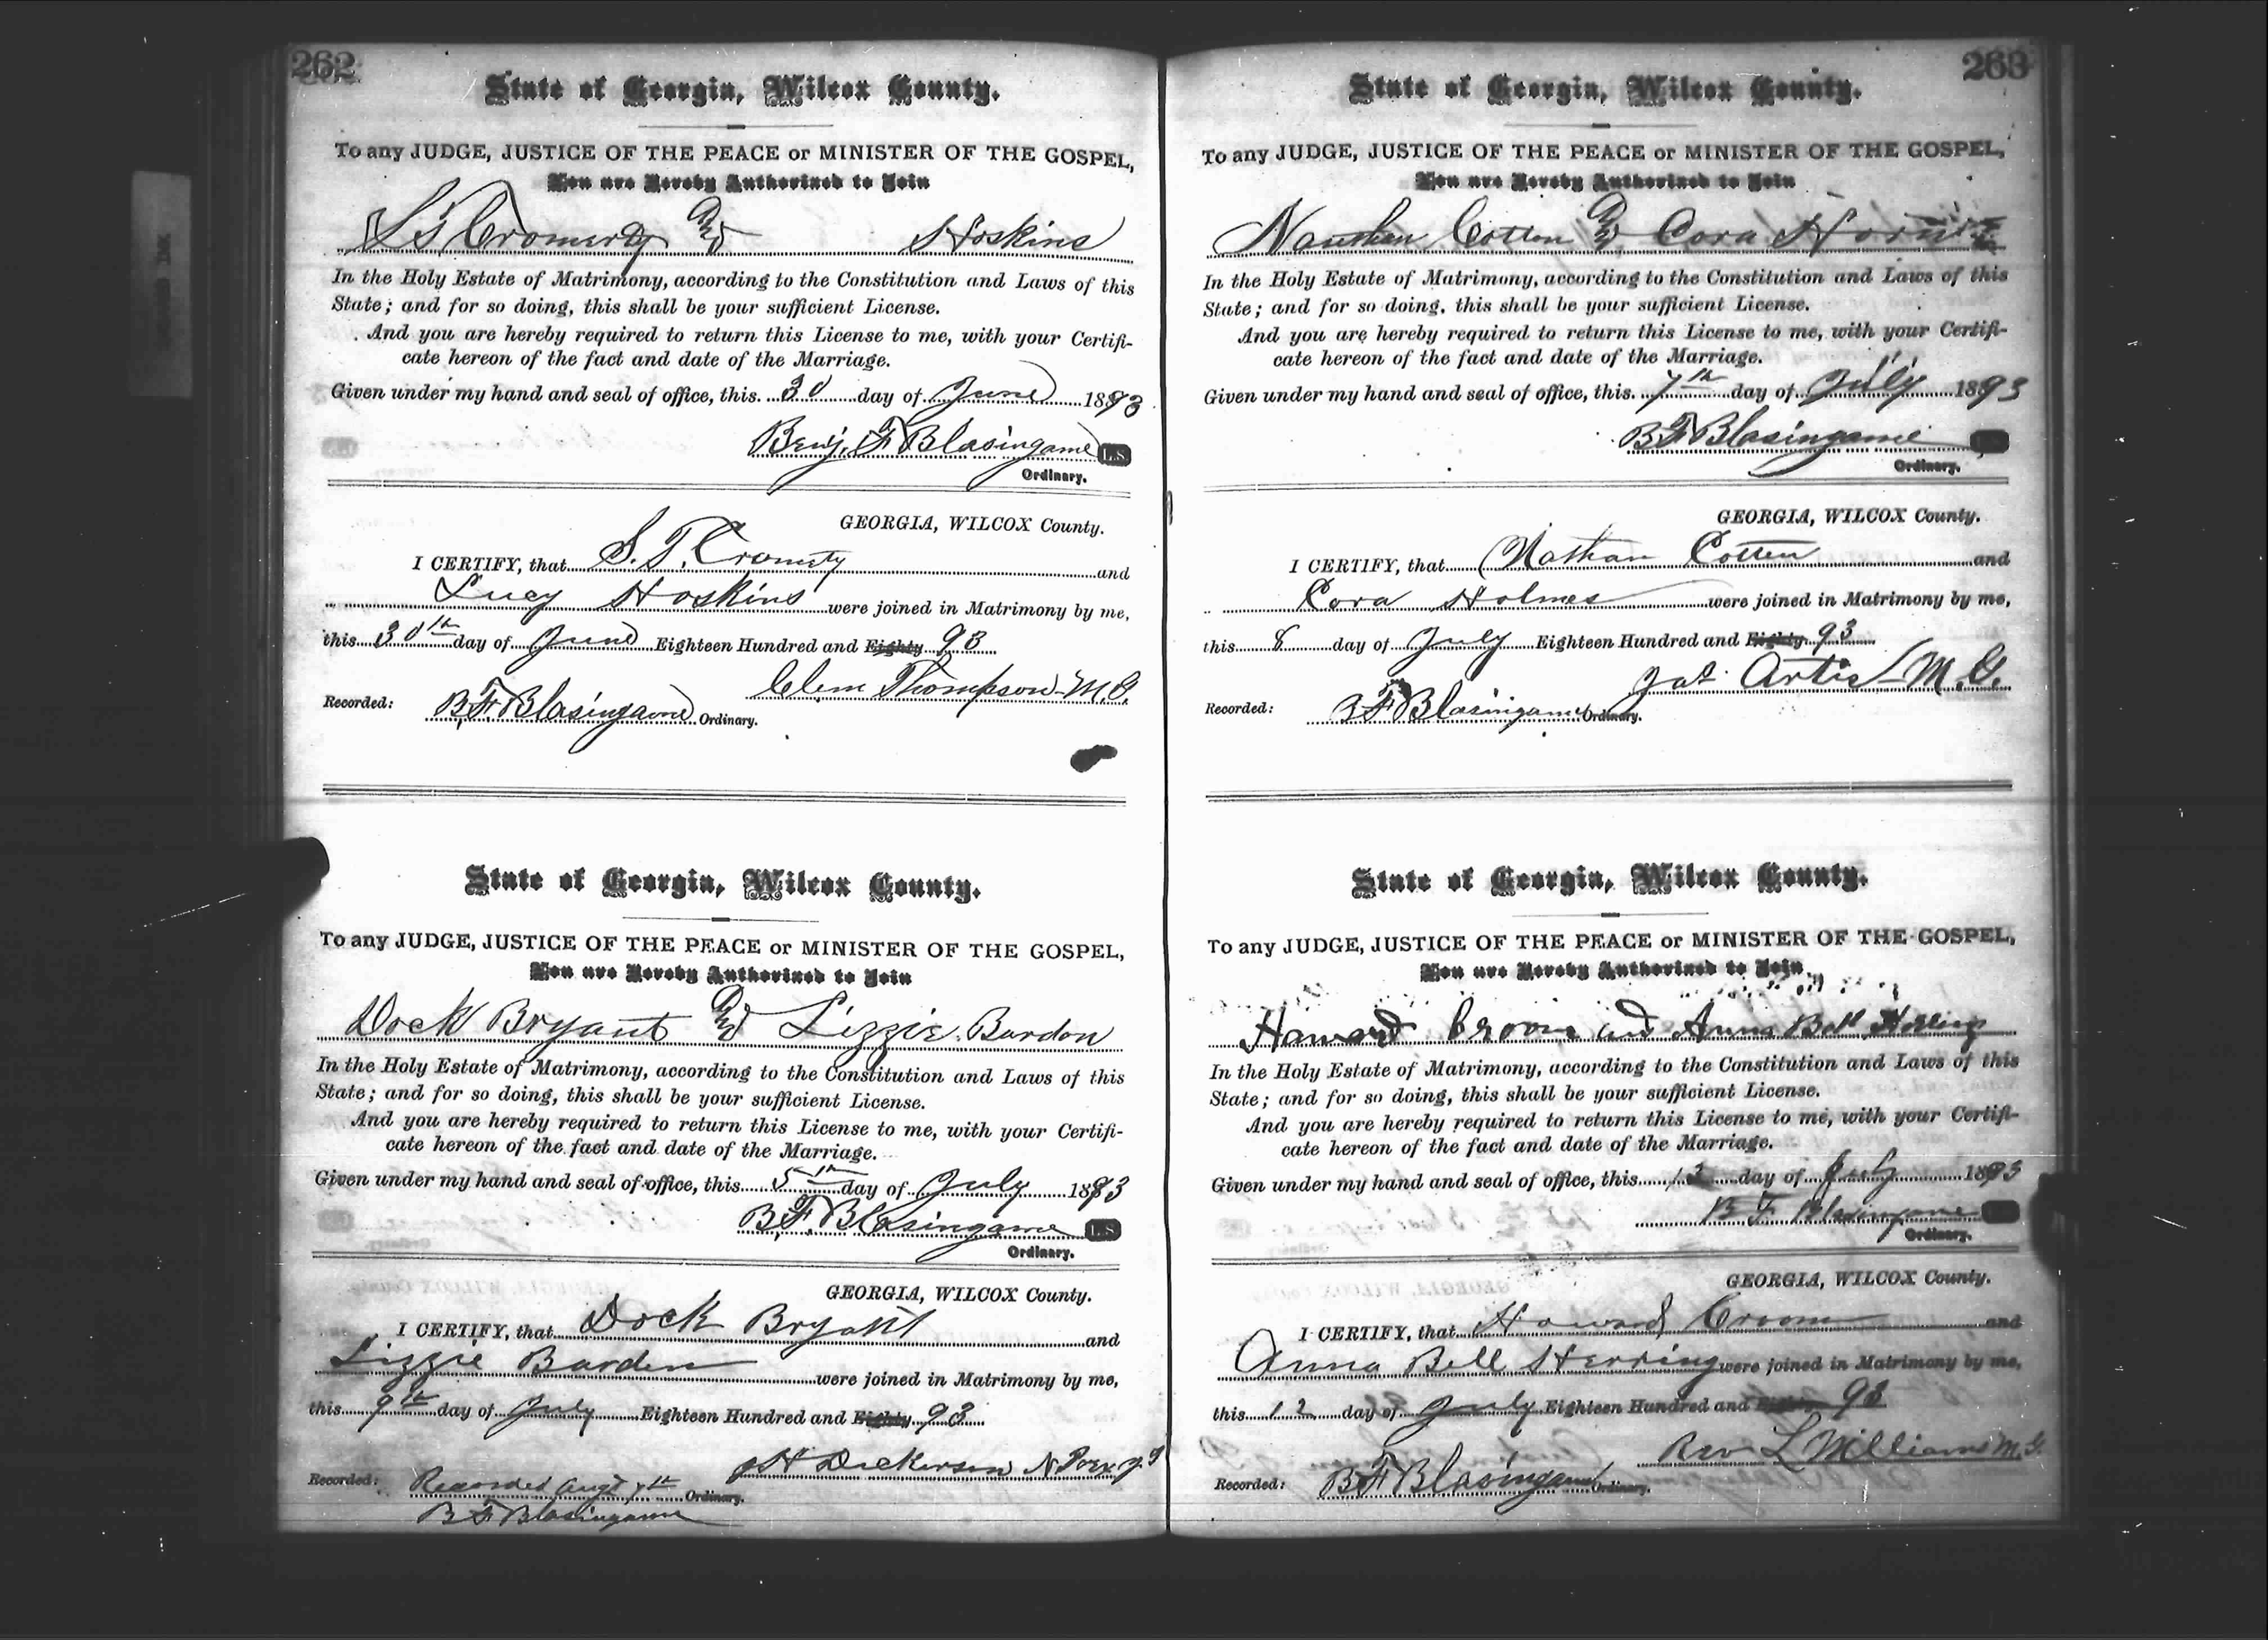 262
State of Georgia, Wilcox County.
To any JUDGE, JUSTICE OF THE PEACE or MINISTER OF THE GOSPEL,
You are Hereby Authorized to Join
And Hoskins
In the Holy Estate of Matrimony, according to the Constitution and Laws of this
State; and for so doing, this shall be your sufficient License.
And you are hereby required to return this License to me, with your Certifi-
cate hereon of the fact and date of the Marriage.
Given under my hand and seal of office, this 30 day of June 1893
Benj. F Blasingame L.S.
Ordinary.
GEORGIA, WILCOX County.
I CERTIFY, that S. T. Cromety and
Lucy Hoskins were joined in Matrimony by me,
this 30th day of June Eighteen Hundred and Eighty 93
Clem Thompson M.G.
Recorded: B.F. Blasingame Ordinary.
State of Georgia, Wilcox County.
To any JUDGE, JUSTICE OF THE PEACE or MINISTER OF THE GOSPEL,
You are Hereby Authorized to Join
Dock Bryant And Lizzie Burdon
In the Holy Estate of Matrimony, according to the Constitution and Laws of this
State; and for so doing, this shall be your sufficient License.
And you are hereby required to return this License to me, with your Certifi-
cate hereon of the fact and date of the Marriage.
Given under my hand and seal of office, this 5th day of July 1893
B.F. Blasingame L.S.
Ordinary.
GEORGIA, WILCOX County.
I CERTIFY, that Dock Bryant and
Lizzie Burden were joined in Matrimony by me,
this 9th day of July Eighteen Hundred and Eighty 93
H Dickerson
Recorded: Recorded Augt 7th Ordinary.
B F Blasingame
263
State of Georgia, Wilcox County.
To any JUDGE, JUSTICE OF THE PEACE or MINISTER OF THE GOSPEL,
You are Hereby Authorized to Join
Cotton And Cora
In the Holy Estate of Matrimony, according to the Constitution and Laws of this
State; and for so doing, this shall be your sufficient License.
And you are hereby required to return this License to me, with your Certifi-
cate hereon of the fact and date of the Marriage.
Given under my hand and seal of office, this 7th day of July 1893
B F Blasingame
Ordinary.
GEORGIA, WILCOX County.
I CERTIFY, that Nathan Cotten and
Cora Holmes were joined in Matrimony by me,
this 8 day of July Eighteen Hundred and Eighty 93
Artis M.G.
Recorded: B F Blasingame Ordinary.
State of Georgia, Wilcox County.
To any JUDGE, JUSTICE OF THE PEACE or MINISTER OF THE GOSPEL,
You are Hereby Authorized to Join
Howard Croom and Anna Bell Herring
In the Holy Estate of Matrimony, according to the Constitution and Laws of this
State; and for so doing, this shall be your sufficient License.
And you are hereby required to return this License to me, with your Certifi-
cate hereon of the fact and date of the Marriage.
Given under my hand and seal of office, this day of July 1893
B F Blasingame
Ordinary.
GEORGIA, WILCOX County.
I CERTIFY, that Howard Croom and
Anna Bell Herring were joined in Matrimony by me,
this 12 day of July Eighteen Hundred and Eighty 93
Rev L Williams M.G.
Recorded: B F Blasingame Ordinary.